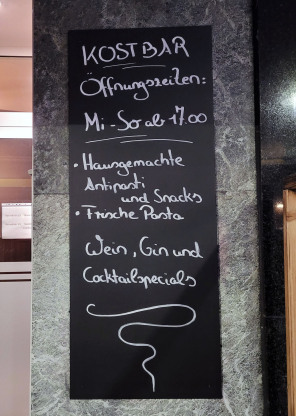 KOSTBAR
Öffnungszeiten:
Mi - So ab 17.00
• Hausgemachte
Antipasti
und Snacks
• Frische Pasta
Wein, Gin und
Cocktailspecials